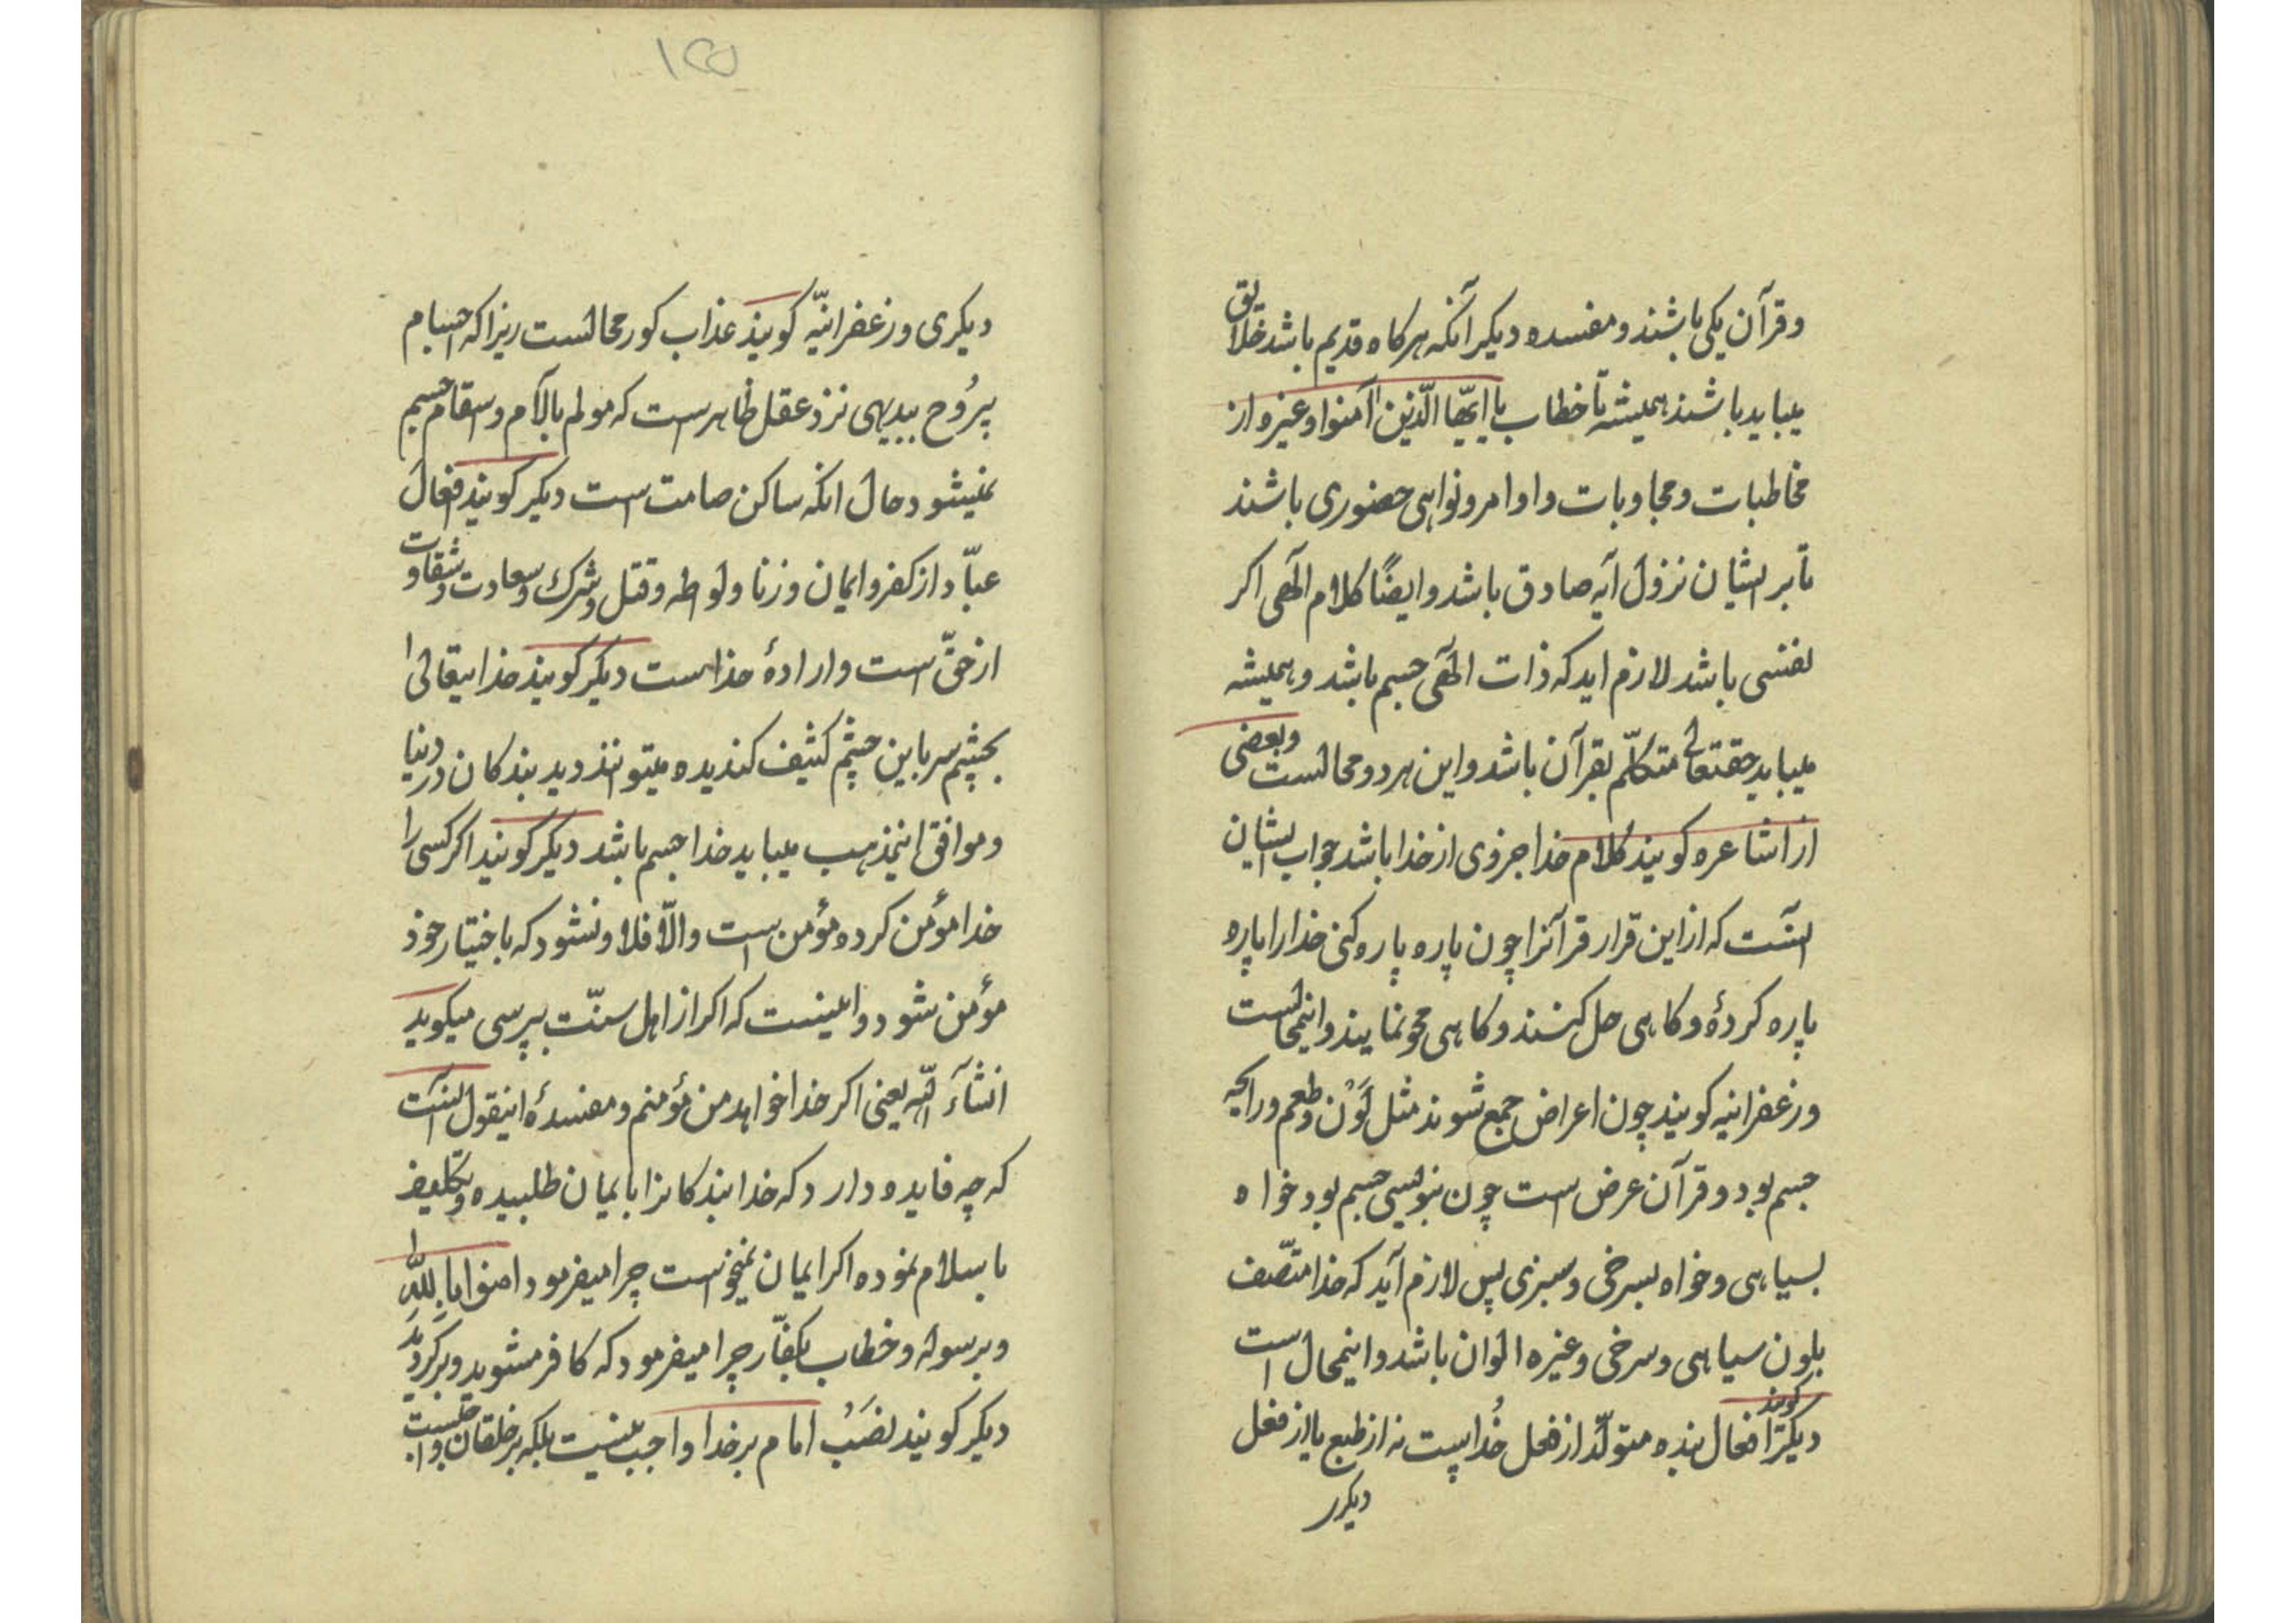 وقرآن یکی باشند ومفسده دیکر آنکه هرکاه قدیم باشد خلایق
میباید باشند همیشه تا خطاب یا ایّها الّذین آمنوا وغیره از
مخاطبات ومجاوبات واوامر ونواهی حضوری باشند
تا بر ایشان نزول آیه صادق باشد وایضًا کلام الهی اکر
نفسی باشد لازم اید که ذات الهی جسم باشد وهمیشه
میباید حقتعالی متکلّم بقرآن باشد واین هردو محالست وبعضی
از اشاعره کویند کلام خدا جزوی از خدا باشد جواب ایشان
انست که از این قرار قرآنرا چون پاره پاره کنی خدا را پاره
پاره کردهٔ وکاهی حل کنند وکاهی محو نمایند واینمحالست
وزعفرانیه کویند چون اعراض جمع شوند مثل لَوْن وطعم ورایحه
جسم بود وقرآن عرض است چون بنویسی جسم بود خواه
بسیاهی وخواه بسرخی وسبزی پس لازم آید که خدا متّصف
بلون سیاهی وسرخی وغیره الوان باشد واینمحال است
دیکر کویند افعال بنده متولّد از فعل خُداست نه از طبع یا از فعل
دیکر
۱۲۵
دیکری وزعفرانیّه کویند عذاب کور محالست زیرا که اجسام
بیرُوح ببدیهی نزد عقل ظاهر است که مولم بالآم وسقام جسم
نمیشود وحال انکه ساکن صامت است دیکر کویند افعال
عبّاد از کفر وایمان وزنا ولواطه وقتل وشرک وسعادت وشقاوت
از حقّ است وارادهٔ خداست دیکر کویند خدایتعالی را
بچشم سر باین چشم کثیف کندیده میتوانند دید بندکان در دنیا
وموافق اینمذهب میباید خدا جسم باشد دیکر کویند اکر کسی را
خدا مؤمن کرده مؤمن است والّا فلا ونشود که باختیار خود
مؤمن شود واینست که اکر از اهل سنّت بپرسی میکوید
انشآءَ الله یعنی اکر خدا خواهد من مؤمنم ومفسدهٔ اینقول انست
که چه فایده دارد که خدا بندکانرا بایمان طلبیده وتکلیف
باسلام نموده اکر ایمان نمیخواست چرا میفرمود امنوا باللهِ
وبرسوله وخطاب بکفّار چرا میفرمود که کافر مشوید وبرکردید
دیکر کویند نصَبْ امام بر خدا واجب نیست بلکه بر خلقان واجبست